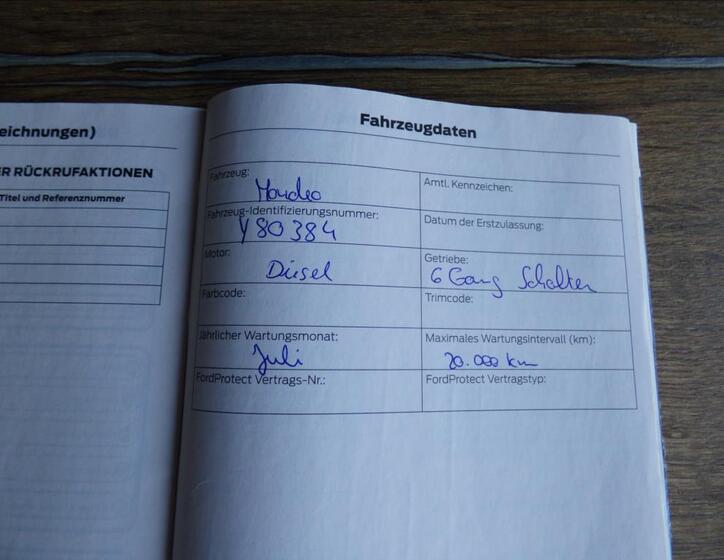 eichnungen)
ER RÜCKRUFAKTIONEN
Titel und Referenznummer
Fahrzeugdaten
Fahrzeug:
Mondeo
Amtl. Kennzeichen:
Fahrzeug-Identifizierungsnummer:
Y80384
Datum der Erstzulassung:
Motor:
Diesel
Getriebe:
6 Gang Schalter
Farbcode:
Trimcode:
Jährlicher Wartungsmonat:
Juli
Maximales Wartungsintervall (km):
20.000 km
FordProtect Vertrags-Nr.:
FordProtect Vertragstyp: